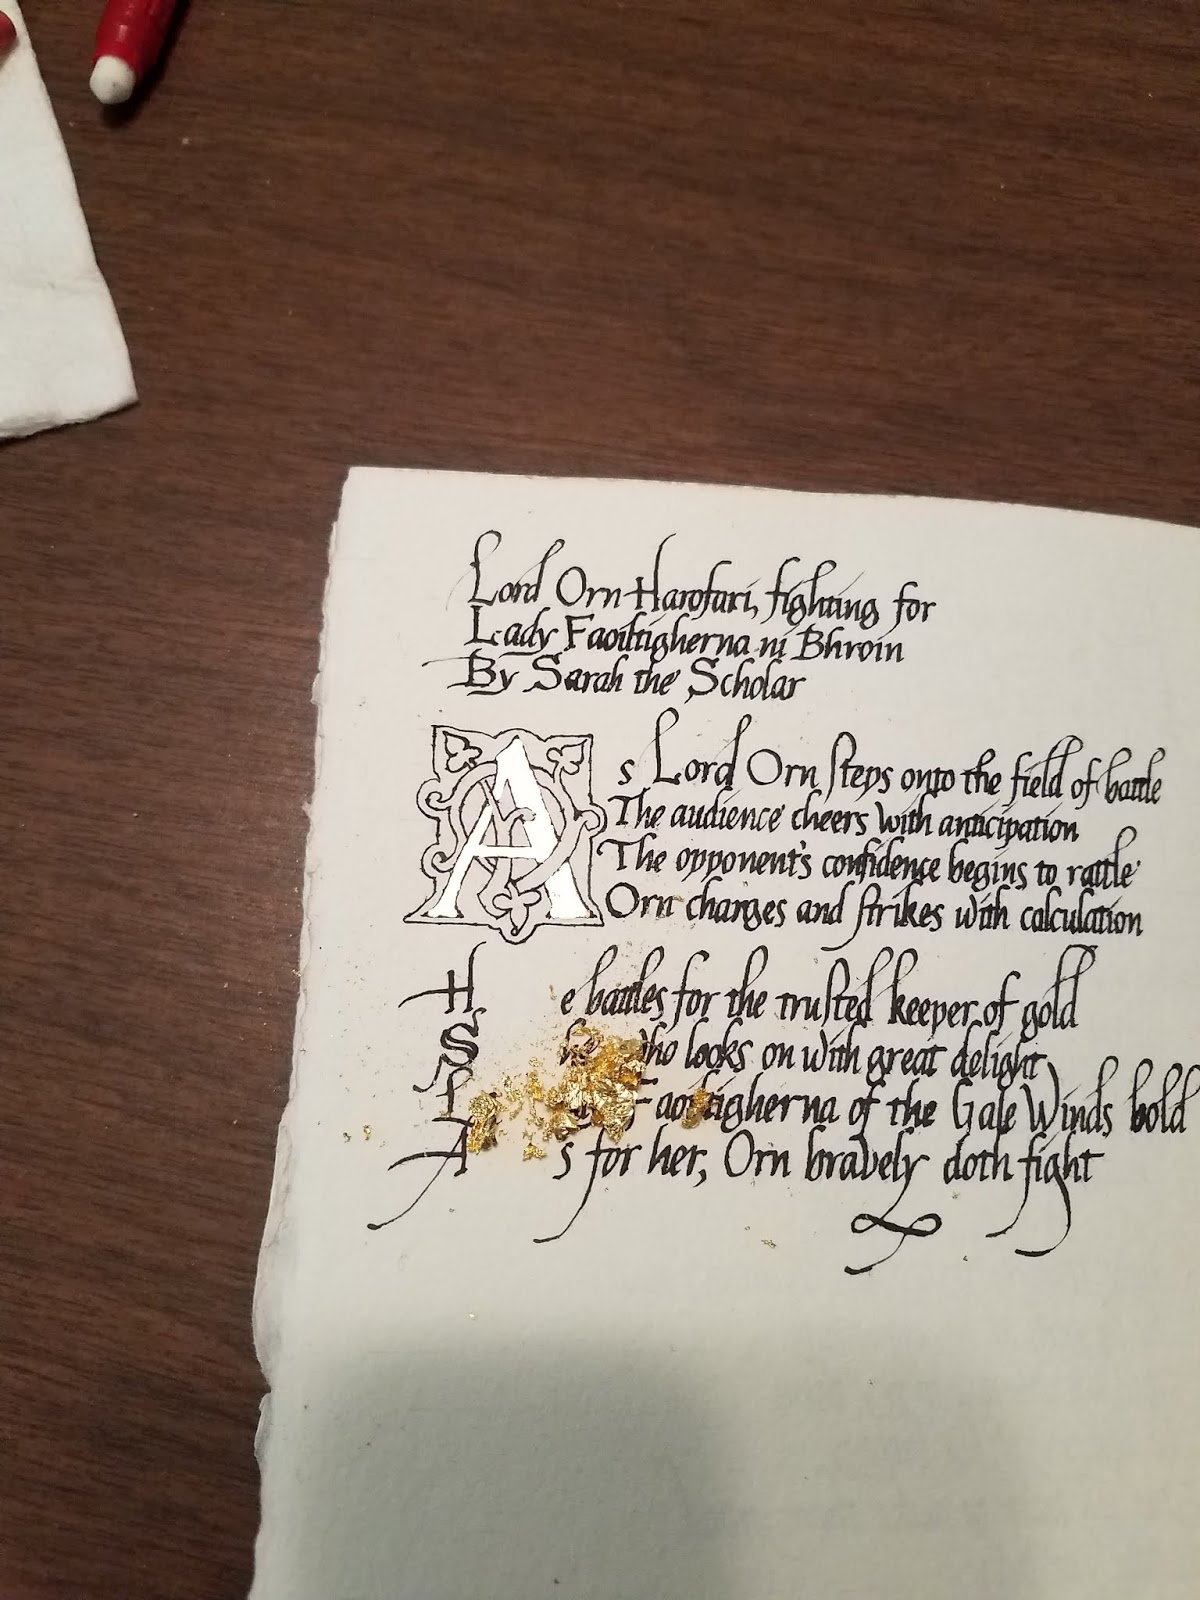 Lord Orn Harofari, fighting for
Lady Faoiltigherna ni Bhroin
By Sarah the Scholar
As Lord Orn steps onto the field of battle
The audience cheers with anticipation
The opponent's confidence begins to rattle
Orn charges and strikes with calculation
He battles for the trusted keeper of gold
She who looks on with great delight
Faoiltigherna of the Gale Winds bold
As for her, Orn bravely doth fight